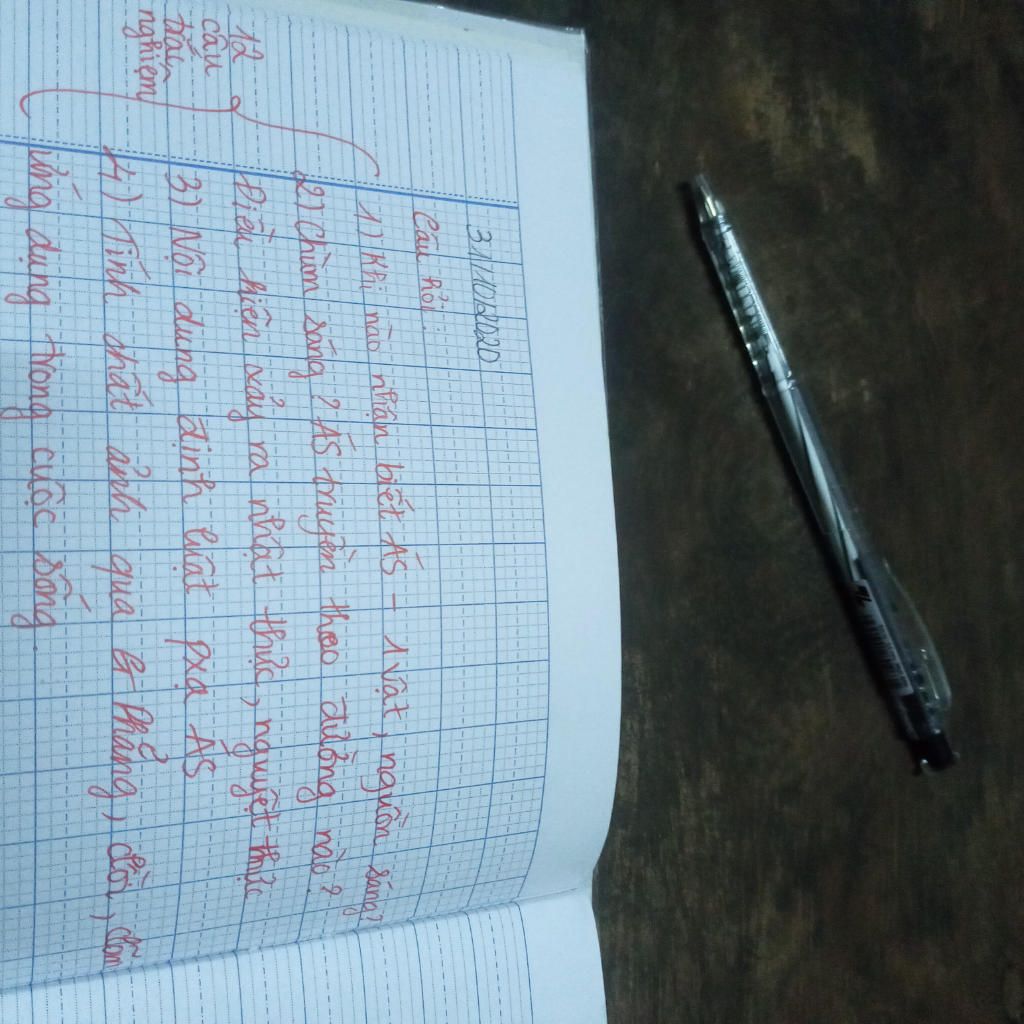 31/10/2020
Câu hỏi.
1) Khi nào nhận biết ÁS - 1 vật, nguồn sáng?
2) Chùm sáng? ÁS truyền theo đường nào?
Điều kiện xảy ra nhật thực, nguyệt thực
3) Nội dung định luật pxạ ÁS
4) Tính chất ảnh qua G Phẳng, lồi, lõm
ứng dụng trong cuộc sống.
12
câu
trắc
nghiệm